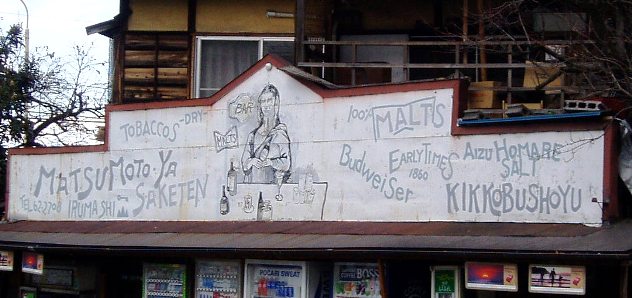 TOBACCOS -DRY-
BAR
MATSUMOTO-YA
SAKETEN
TEL 62-2708 IRUMASHI
100% MALTS
EARLY TIMES
1860
BUDWEISER
AIZU HOMARE
SALT
KIKKOBUSHOYU
POCARI SWEAT
COFFEE BOSS